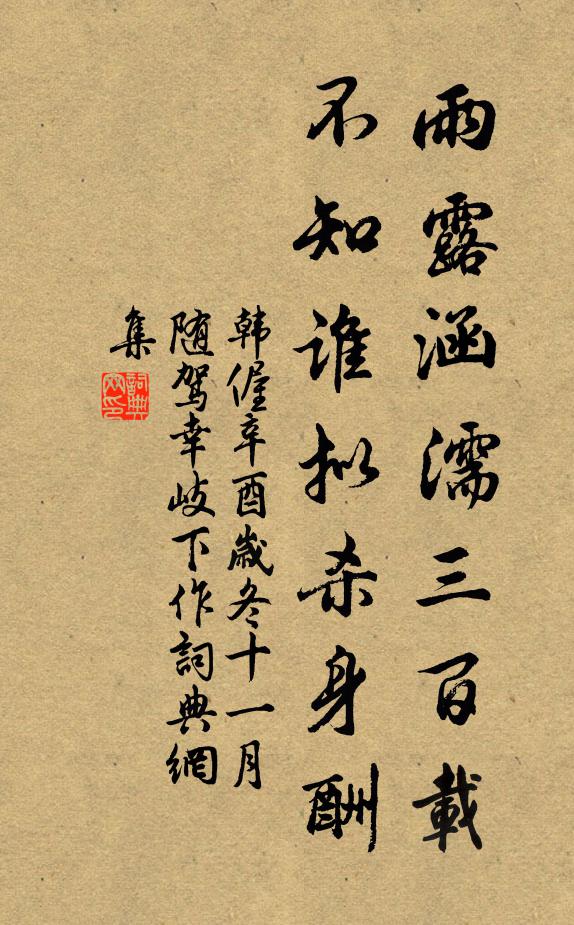 雨露涵濡三百載
不知誰拟杀身酬
韩偓辛酉歲冬十一月
随駕幸岐下作詞典網
集
詞典網印